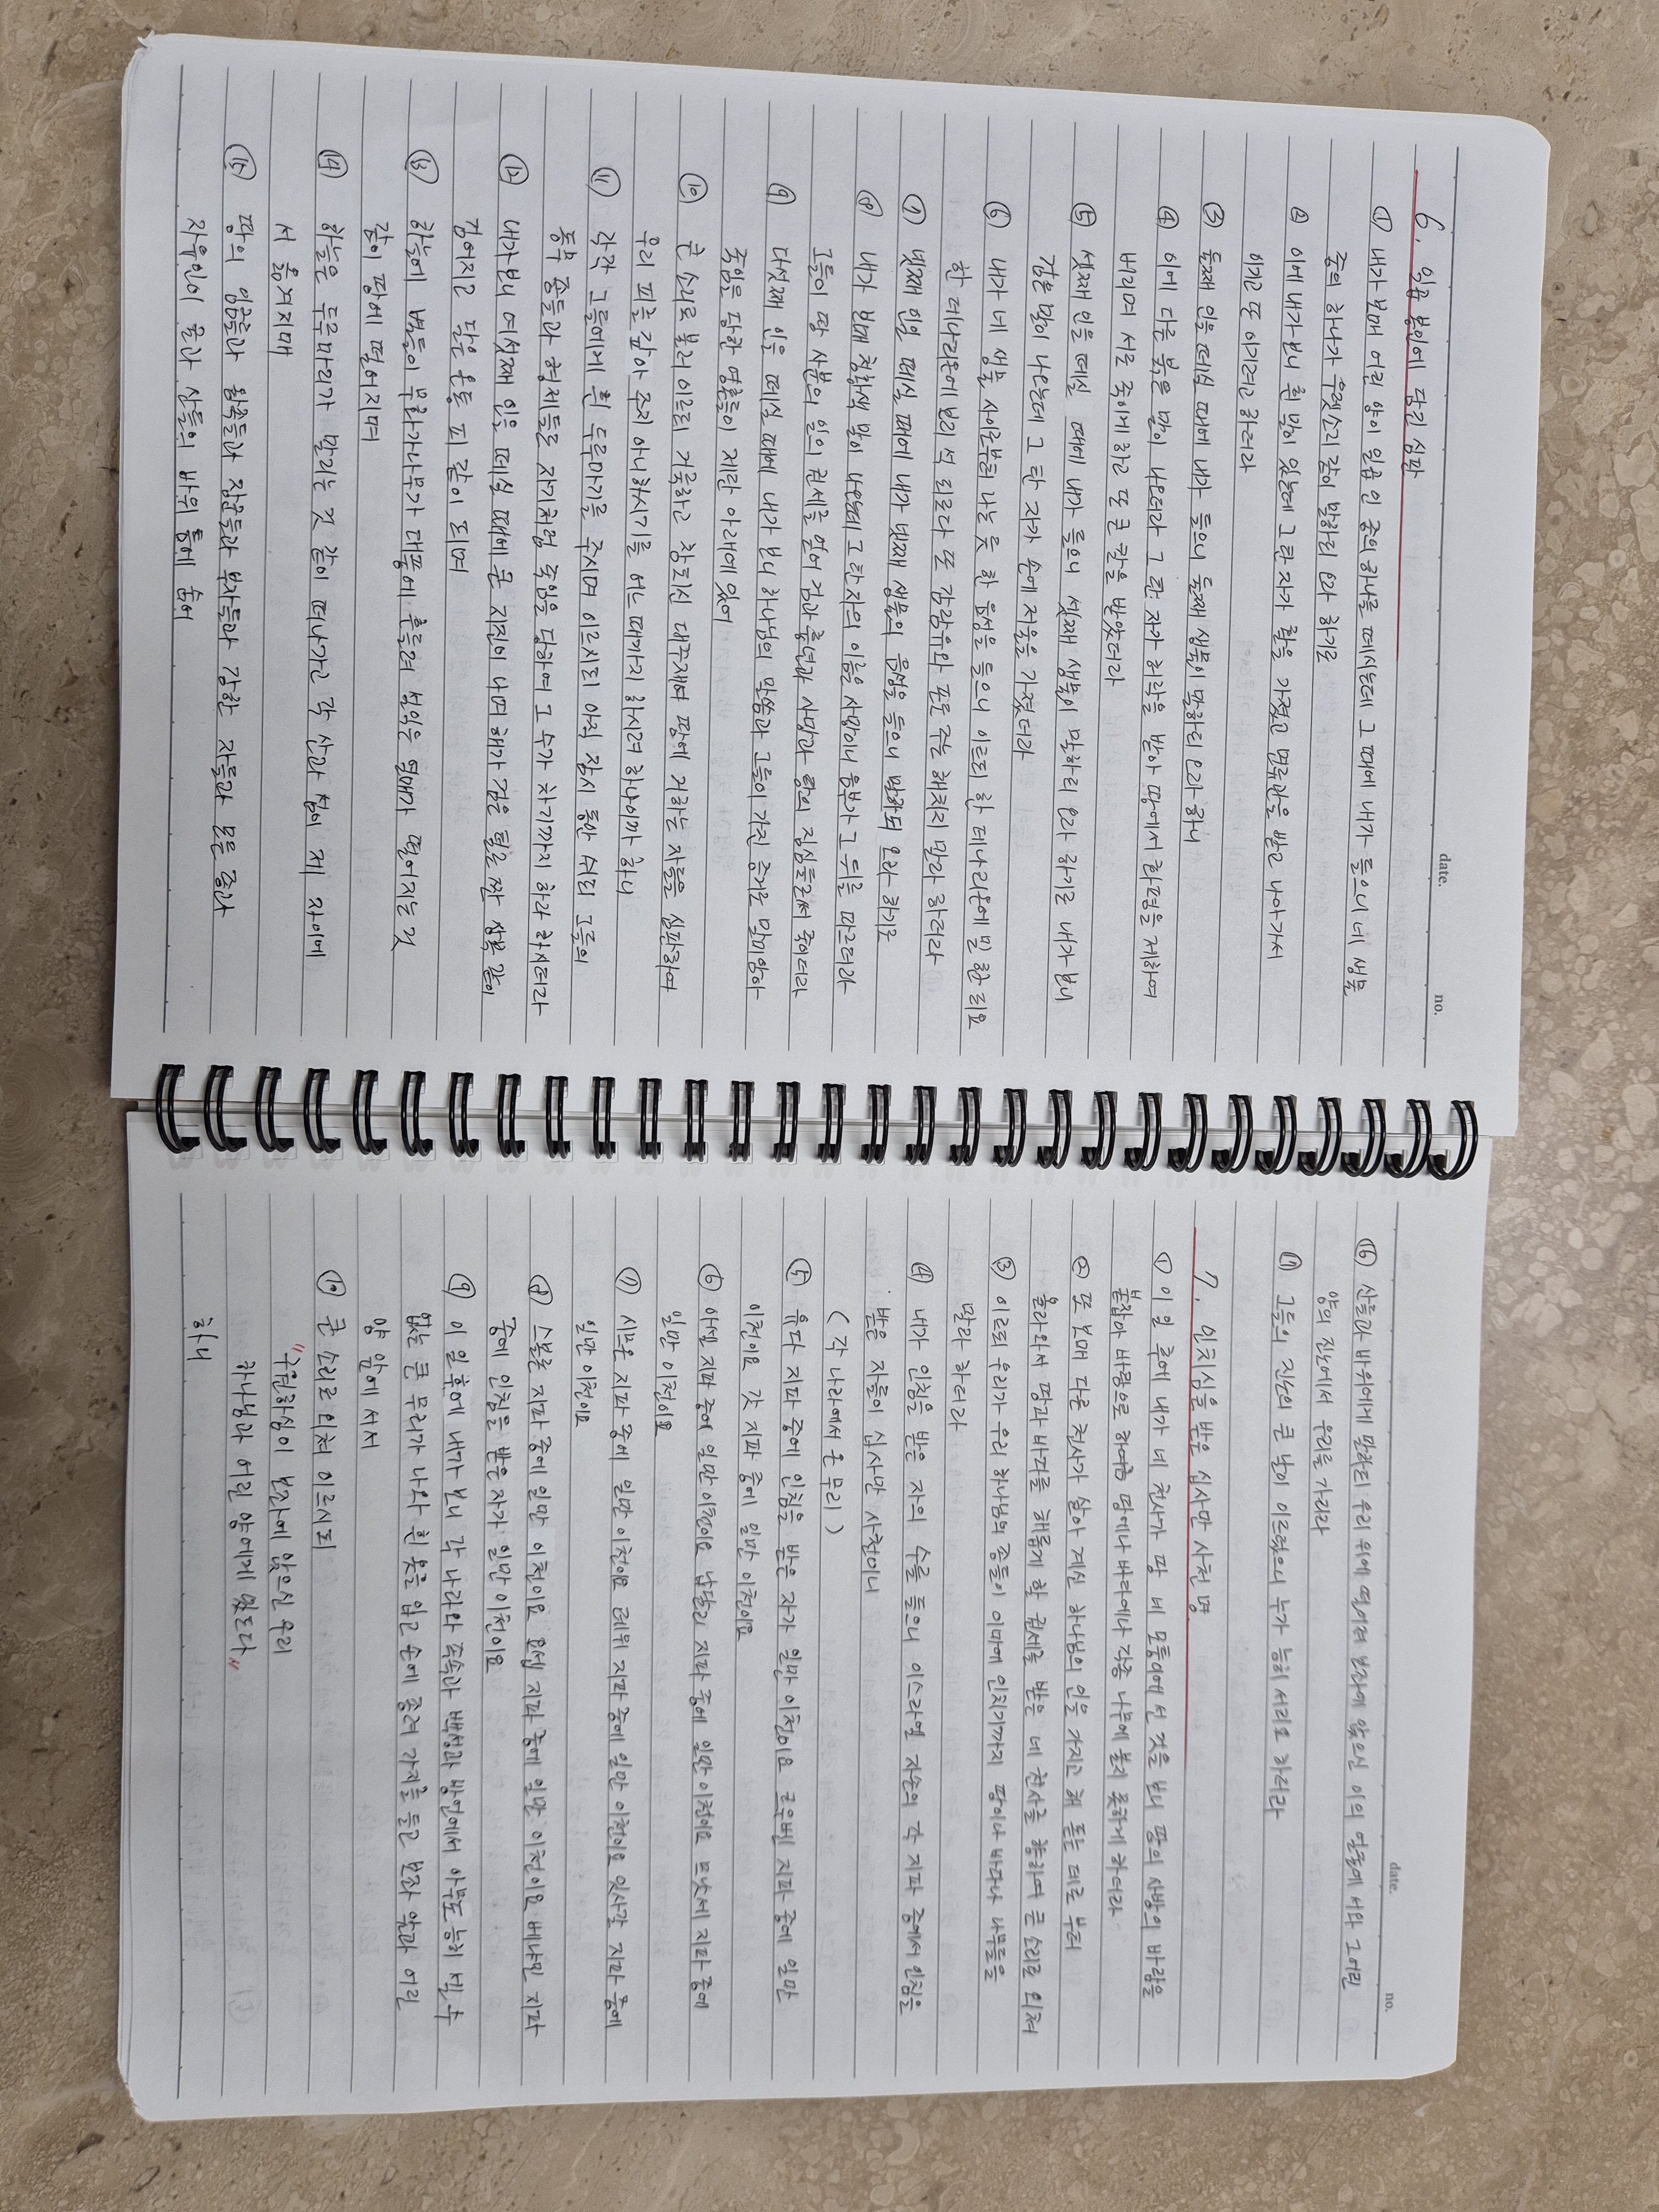 date.
no.
6. 일곱 봉인에 담긴 심판
① 내가 보매 어린 양이 일곱 인 중의 하나를 떼시는데 그 때에 내가 들으니 네 생물
중의 하나가 우렛소리 같이 말하되 오라 하기로
② 이에 내가 보니 흰 말이 있는데 그 탄 자가 활을 가졌고 면류관을 받고 나아가서
이기고 또 이기려고 하더라
③ 둘째 인을 떼실 때에 내가 들으니 둘째 생물이 말하되 오라 하니
④ 이에 다른 붉은 말이 나오더라 그 탄 자가 허락을 받아 땅에서 화평을 제하여
버리며 서로 죽이게 하고 또 큰 칼을 받았더라
⑤ 셋째 인을 떼실 때에 내가 들으니 셋째 생물이 말하되 오라 하기로 내가 보니
검은 말이 나오는데 그 탄 자가 손에 저울을 가졌더라
⑥ 내가 네 생물 사이로부터 나는 듯 한 음성을 들으니 이르되 한 데나리온에 밀 한 되요
한 데나리온에 보리 석 되로다 또 감람유와 포도주는 해치지 말라 하더라
⑦ 넷째 인을 떼실 때에 내가 넷째 생물의 음성을 들으니 말하되 오라 하기로
⑧ 내가 보매 청황색 말이 나오는데 그 탄 자의 이름은 사망이니 음부가 그 뒤를 따르더라
그들이 땅 사분의 일의 권세를 얻어 검과 흉년과 사망과 땅의 짐승들로써 죽이더라
⑨ 다섯째 인을 떼실 때에 내가 보니 하나님의 말씀과 그들이 가진 증거로 말미암아
죽임을 당한 영혼들이 제단 아래에 있어
⑩ 큰 소리로 불러 이르되 거룩하고 참되신 대주재여 땅에 거하는 자들을 심판하여
우리 피를 갚아 주지 아니하시기를 어느 때까지 하시려 하나이까 하니
⑪ 각각 그들에게 흰 두루마기를 주시며 이르시되 아직 잠시 동안 쉬되 그들의
동무 종들과 형제들도 자기처럼 죽임을 당하여 그 수가 차기까지 하라 하시더라
⑫ 내가 보니 여섯째 인을 떼실 때에 큰 지진이 나며 해가 검은 털로 짠 상복 같이
검어지고 달은 온통 피 같이 되며
⑬ 하늘에 별들이 무화과나무가 대풍에 흔들려 설익은 열매가 떨어지는 것
같이 땅에 떨어지며
⑭ 하늘은 두루마리가 말리는 것 같이 떠나가고 각 산과 섬이 제 자리에
서 옮겨지매
⑮ 땅의 임금들과 왕족들과 장군들과 부자들과 강한 자들과 모든 종과
자유인이 굴과 산들의 바위 틈에 숨어
date.
no.
⑯ 산들과 바위에게 말하되 우리 위에 떨어져 보좌에 앉으신 이의 얼굴에서와 그 어린
양의 진노에서 우리를 가리라
⑰ 그들의 진노의 큰 날이 이르렀으니 누가 능히 서리요 하더라
7. 인치심을 받은 십사만 사천 명
① 이 일 후에 내가 네 천사가 땅 네 모퉁이에 선 것을 보니 땅의 사방의 바람을
붙잡아 바람으로 하여금 땅에나 바다에나 각종 나무에 불지 못하게 하더라
② 또 보매 다른 천사가 살아 계신 하나님의 인을 가지고 해 돋는 데로 부터
올라와서 땅과 바다를 해롭게 할 권세를 받은 네 천사를 향하여 큰 소리로 외쳐
③ 이르되 우리가 우리 하나님의 종들의 이마에 인치기까지 땅이나 바다나 나무들을
말라 하더라
④ 내가 인침을 받은 자의 수를 들으니 이스라엘 자손의 각 지파 중에서 인침을
받은 자들이 십사만 사천이니
(각 나라에서 온 무리)
⑤ 유다 지파 중에 인침을 받은 자가 일만 이천이요 르우벤 지파 중에 일만
이천이요 갓 지파 중에 일만 이천이요
⑥ 아셀 지파 중에 일만 이천이요 납달리 지파 중에 일만 이천이요 므낫세 지파 중에
일만 이천이요
⑦ 시므온 지파 중에 일만 이천이요 레위 지파 중에 일만 이천이요 잇사갈 지파 중에
일만 이천이요
⑧ 스불론 지파 중에 일만 이천이요 요셉 지파 중에 일만 이천이요 베냐민 지파
중에 인침을 받은 자가 일만 이천이요
⑨ 이 일 후에 내가 보니 각 나라와 족속과 백성과 방언에서 아무도 능히 셀 수
없는 큰 무리가 나와 흰 옷을 입고 손에 종려 가지를 들고 보좌 앞과 어린
양 앞에 서서
⑩ 큰 소리로 외쳐 이르시되
"구원하심이 보좌에 앉으신 우리
하나님과 어린 양에게 있도다"
하니